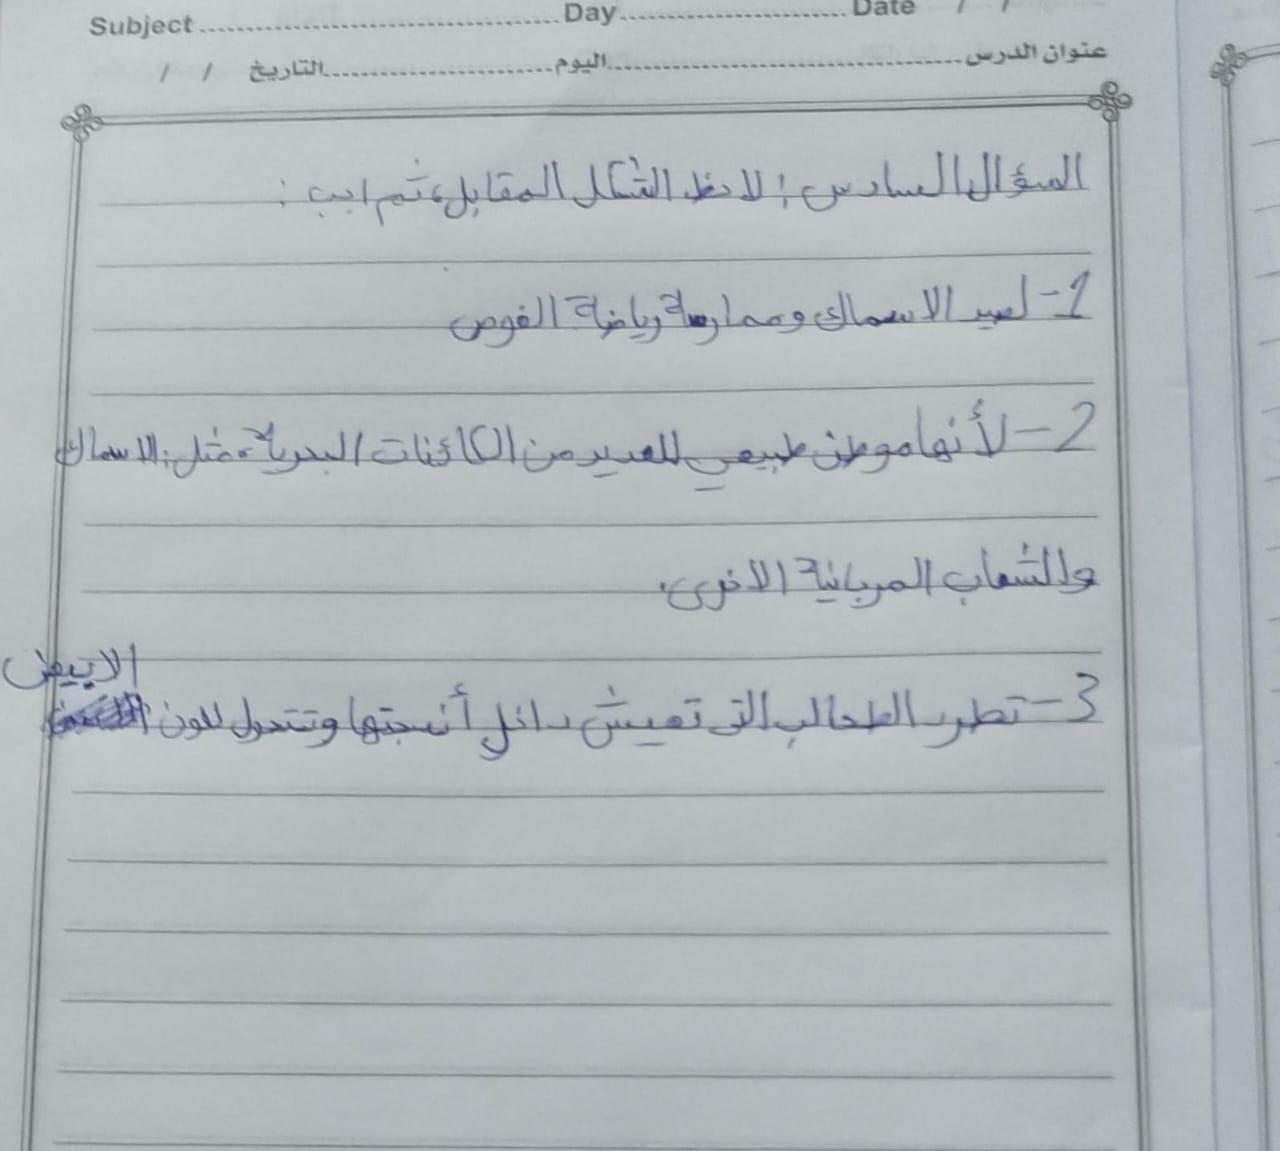 Subject Day Date / /
عنوان الدرس اليوم التاريخ / /
السؤال السادس : لاحظ الشكل المقابل، ثم اجب :
1- لصيد الاسماك وممارسة رياضة الغوص
2- لأنها موطن طبيعي للعديد من الكائنات البحرية مثل: الاسماك
والشعاب المرجانية الاخرى.
3- تطرد الطحالب التي تعيش داخل أنسجتها وتتحول للون الابيض